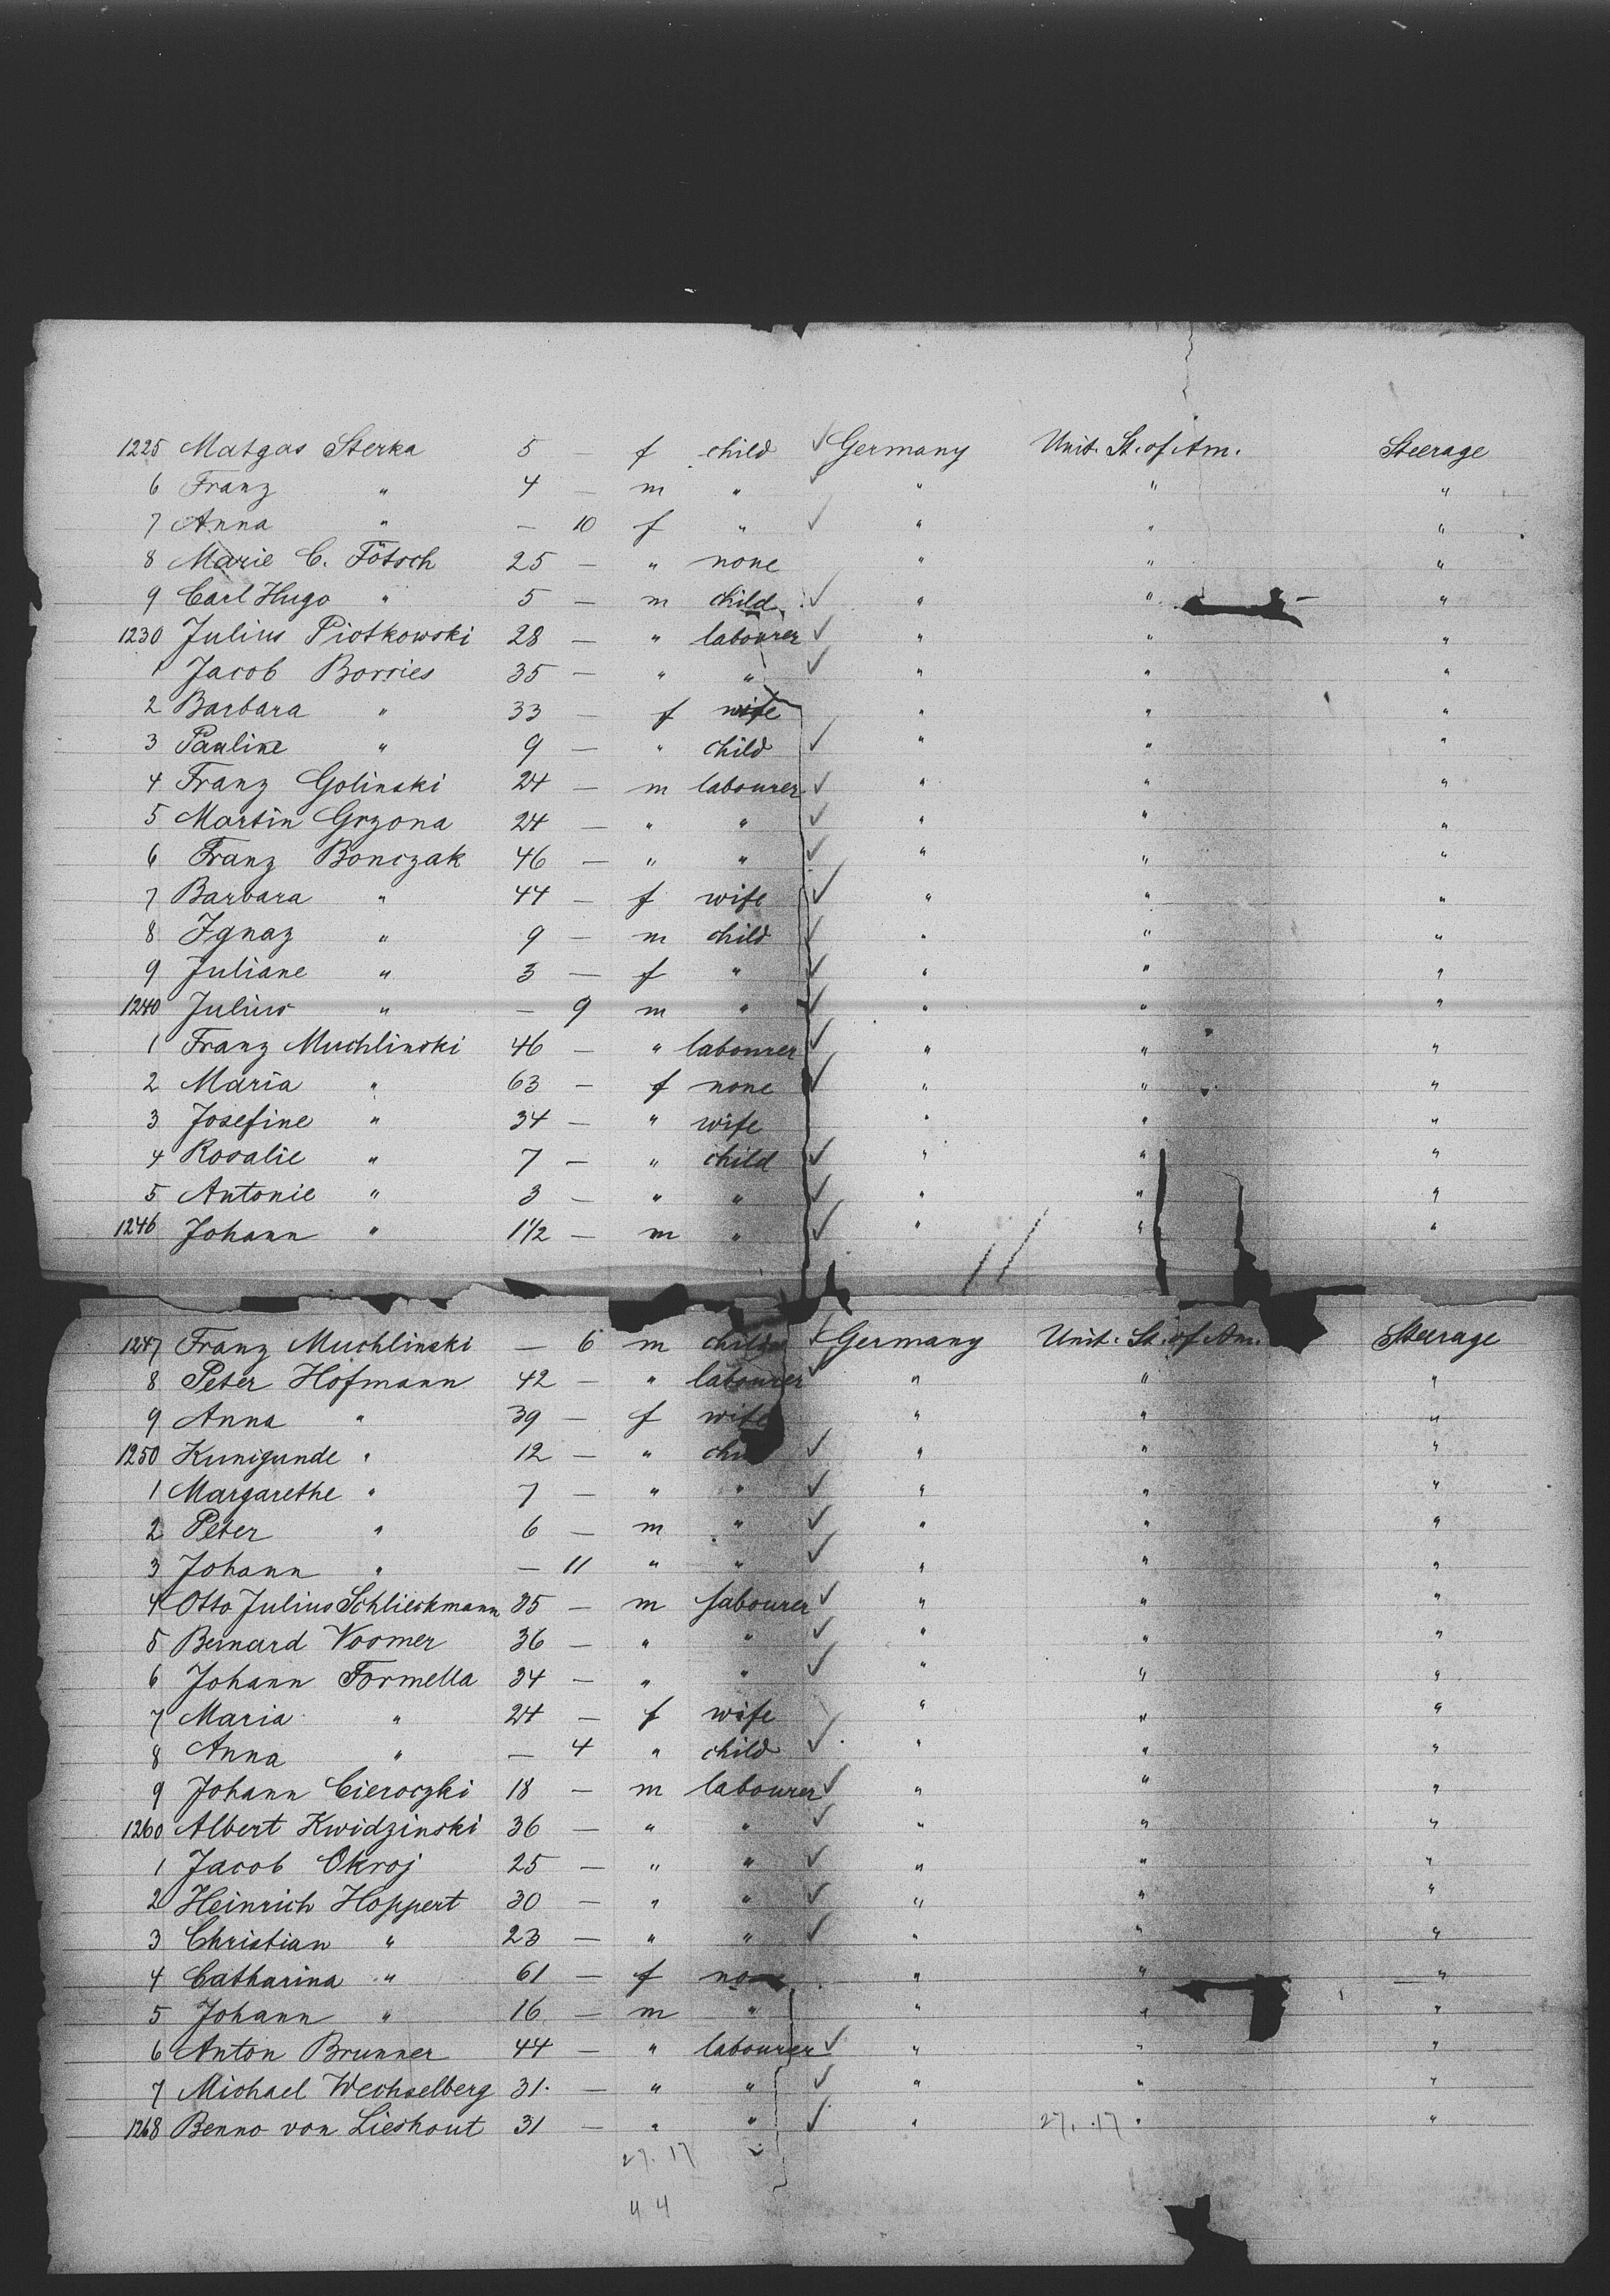 1225 Matgas Sterka 5 — f child ✓ Germany Unit. St. of Am. Steerage
6 Franz " 4 — m " ✓ " " "
7 Anna " — 10 f " ✓ " " "
8 Marie C. Fötsch 25 — " none " " "
9 Carl Hugo " 5 — m child ✓ " " "
1230 Julius Piotkowski 28 — " labourer ✓ " " "
1 Jacob Borries 35 — " " ✓ " " "
2 Barbara " 33 — f wife " " "
3 Pauline " 9 — " child ✓ " " "
4 Franz Golinski 24 — m labourer ✓ " " "
5 Martin Grzona 24 — " " ✓ " " "
6 Franz Bonczak 46 — " " ✓ " " "
7 Barbara " 44 — f wife ✓ " " "
8 Ignaz " 9 — m child ✓ " " "
9 Juliane " 3 — f " ✓ " " "
1240 Julius " — 9 m " ✓ " " "
1 Franz Muchlinski 46 — " labourer ✓ " " "
2 Maria " 63 — f none ✓ " " "
3 Josefine " 34 — " wife " " "
4 Rosalie " 7 — " child ✓ " " "
5 Antonie " 3 — " " ✓ " " "
1246 Johann " 1 1/2 — m " ✓ " " "
11
1247 Franz Muchlinski — 6 m child ✓ Germany Unit. St. of Am. Steerage
8 Peter Hofmann 42 — " labourer ✓ " " "
9 Anna " 39 — f wife " " "
1250 Kunigunde " 12 — " child ✓ " " "
1 Margarethe " 7 — " " ✓ " " "
2 Peter " 6 — m " ✓ " " "
3 Johann " — 11 " " ✓ " " "
4 Otto Julius Schlieckmann 35 — m labourer ✓ " " "
5 Bernard Voomer 36 — " " ✓ " " "
6 Johann Formella 34 — " " ✓ " " "
7 Maria " 24 — f wife " " "
8 Anna " — 4 " child ✓ " " "
9 Johann Cieroczki 18 — m labourer ✓ " " "
1260 Albert Kwidzinski 36 — " " ✓ " " "
1 Jacob Okroj 25 — " " ✓ " " "
2 Heinrich Hoppert 30 — " " ✓ " " "
3 Christian " 23 — " " ✓ " " "
4 Catharina " 61 — f none " " "
5 Johann " 16 — m " " " "
6 Anton Brunner 44 — " labourer ✓ " " "
7 Michael Wechselberg 31. — " " ✓ " " "
1268 Benno von Lieshout 31 — " " ✓ " 27. 17 " "
27. 17
44